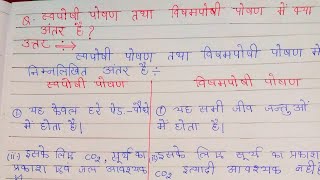 Q. स्वपोषी पोषण तथा विषमपोषी पोषण में क्या
अंतर है?
उतर :→ स्वपोषी पोषण तथा विषमपोषी पोषण में
निम्नलिखित अंतर है:-
स्वपोषी पोषण
विषमपोषी पोषण
(i) यह केवल हरे पेड़-पौधो
में होता है।
(i) यह सभी जीव जन्तुओं
में होता है।
(ii) इसके लिए CO₂, सूर्य का
प्रकाश एवं जल आवश्यक
(ii) इसके लिए सूर्य का प्रकाश
CO₂ इत्यादी आवश्यक नहीं